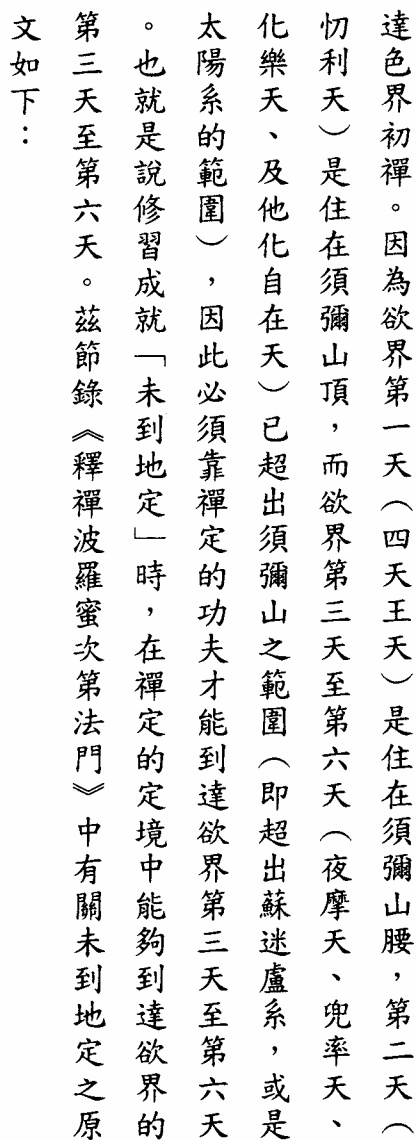 達色界初禪。因為欲界第一天（四天王天）是住在須彌山腰，第二天（
忉利天）是住在須彌山頂，而欲界第三天至第六天（夜摩天、兜率天、
化樂天、及他化自在天）已超出須彌山之範圍（即超出蘇迷盧系，或是
太陽系的範圍），因此必須靠禪定的功夫才能到達欲界第三天至第六天
。也就是說修習成就「未到地定」時，在禪定的定境中能夠到達欲界的
第三天至第六天。茲節錄《釋禪波羅蜜次第法門》中有關未到地定之原
文如下：